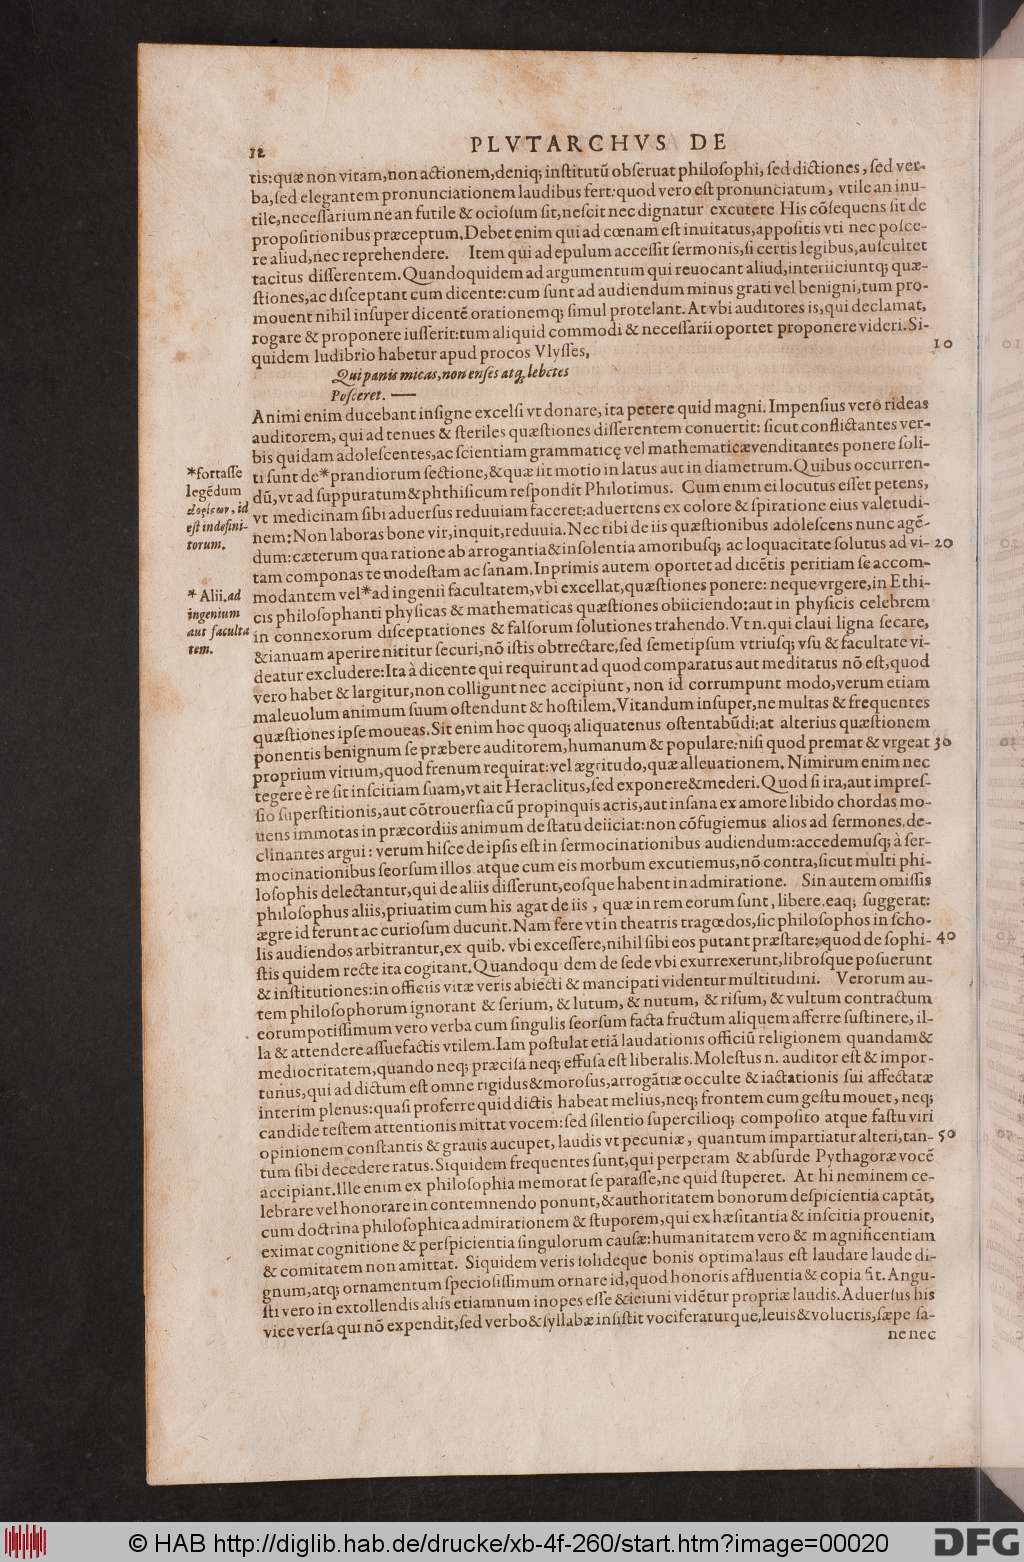 12
PLVTARCHVS DE
tis: quæ non vitam, non actionem, deniq; institutū obseruat philosophi, sed dictiones, sed ver-
ba, sed elegantem pronunciationem laudibus fert: quod vero est pronunciatum, vtile an inu-
tile, necessarium ne an futile & ociosum sit, nescit nec dignatur excutere His cōsequens sit de
propositionibus præceptum. Debet enim qui ad cœnam est inuitatus, appositis vti nec posce-
re aliud, nec reprehendere. Item qui ad epulum accessit sermonis, si certis legibus, auscultet
tacitus disserentem. Quandoquidem ad argumentum qui reuocant aliud, interiiciuntq; quæ-
stiones, ac disceptant cum dicente: cum sunt ad audiendum minus grati vel benigni, tum pro-
mouent nihil insuper dicentē orationemq; simul protelant. At vbi auditores is, qui declamat,
rogare & proponere iusserit: tum aliquid commodi & necessarii oportet proponere videri. Si-
quidem ludibrio habetur apud procos Vlysses,
10
Qui panis micas, non enses atq, lebetes
Posceret. —
Animi enim ducebant insigne excelsi vt donare, ita petere quid magni. Impensius vero rideas
auditorem, qui ad tenues & steriles quæstiones disserentem conuertit: sicut conflictantes ver-
bis quidam adolescentes, ac scientiam grammaticę vel mathematicæ venditantes ponere soli-
ti sunt de * prandiorum sectione, & quæ sit motio in latus aut in diametrum. Quibus occurren-
dū, vt ad suppuratum & phthisicum respondit Philotimus. Cum enim ei locutus esset petens,
vt medicinam sibi aduersus reduuiam faceret: aduertens ex colore & spiratione eius valetudi-
nem: Non laboras bone vir, inquit, reduuia. Nec tibi de iis quæstionibus adolescens nunc agē-
dum: cæterum qua ratione ab arrogantia & insolentia amoribusq; ac loquacitate solutus ad vi-
20
tam componas te modestam ac sanam. Inprimis autem oportet ad dicētis peritiam se accom-
modantem vel * ad ingenii facultatem, vbi excellat, quæstiones ponere: neque vrgere, in Ethi-
cis philosophanti physicas & mathematicas quæstiones obiiciendo: aut in physicis celebrem
in connexorum disceptationes & falsorum solutiones trahendo. Vt n. qui claui ligna secare,
& ianuam aperire nititur securi, nō istis obtrectare, sed semetipsum vtriusq; vsu & facultate vi-
deatur excludere: Ita à dicente qui requirunt ad quod comparatus aut meditatus nō est, quod
vero habet & largitur, non colligunt nec accipiunt, non id corrumpunt modo, verum etiam
maleuolum animum suum ostendunt & hostilem. Vitandum insuper, ne multas & frequentes
quæstiones ipse moueas. Sit enim hoc quoq; aliquatenus ostentabūdi: at alterius quæstionem
ponentis benignum se præbere auditorem, humanum & populare: nisi quod premat & vrgeat
30
proprium vitium, quod frenum requirat: vel ægritudo, quæ alleuationem. Nimirum enim nec
tegere è re sit inscitiam suam, vt ait Heraclitus, sed exponere & mederi. Quod si ira, aut impres-
sio superstitionis, aut cōtrouersia cū propinquis acris, aut insana ex amore libido chordas mo-
uens immotas in præcordiis animum de statu deiiciat: non cōfugiemus alios ad sermones, de-
clinantes argui: verum hisce de ipsis est in sermocinationibus audiendum: accedemusq; à ser-
mocinationibus seorsum illos atque cum eis morbum excutiemus, nō contra, sicut multi phi-
losophis delectantur, qui de aliis disserunt, eosque habent in admiratione. Sin autem omissis
philosophus aliis, priuatim cum his agat de iis, quæ in rem eorum sunt, libere. eaq; suggerat:
ægre id ferunt ac curiosum ducunt. Nam fere vt in theatris tragœdos, sic philosophos in scho-
lis audiendos arbitrantur, ex quib. vbi excessere, nihil sibi eos putant præstare: quod de sophi-
40
stis quidem recte ita cogitant. Quandoqu dem de sede vbi exurrexerunt, librosque posuerunt
& institutiones: in officiis vitæ veris abiecti & mancipati videntur multitudini. Verorum au-
tem philosophorum ignorant & serium, & lutum, & nutum, & risum, & vultum contractum
eorumpotissimum vero verba cum singulis seorsum facta fructum aliquem afferre sustinere, il-
la & attendere assuefactis vtilem. Iam postulat etiā laudationis officiū religionem quandam &
mediocritatem, quando neq; præcisa neq; effusa est liberalis. Molestus n. auditor est & impor-
tunus, qui ad dictum est omne rigidus & morosus, arrogātiæ occulte & iactationis sui affectatæ
interim plenus: quasi proferre quid dictis habeat melius, neq; frontem cum gestu mouet, neq;
candide testem attentionis mittat vocem: sed silentio supercilioq; composito atque fastu viri
opinionem constantis & grauis aucupet, laudis vt pecuniæ, quantum impartiatur alteri, tan-
50
tum sibi decedere ratus. Siquidem frequentes sunt, qui perperam & absurde Pythagoræ vocē
accipiant. Ille enim ex philosophia memorat se parasse, ne quid stuperet. At hi neminem ce-
lebrare vel honorare in contemnendo ponunt, & authoritatem bonorum despicientia captāt,
cum doctrina philosophica admirationem & stuporem, qui ex hæsitantia & inscitia prouenit,
eximat cognitione & perspicientia singulorum causæ: humanitatem vero & magnificentiam
& comitatem non amittat. Siquidem veris solideque bonis optima laus est laudare laude di-
gnum, atq; ornamentum speciosissimum ornare id, quod honoris affluentia & copia sit. Angu-
sti vero in extollendis aliis etiamnum inopes esse & ieiuni vidētur propriæ laudis. Aduersus his
vice versa qui nō expendit, sed verbo & syllabæ insistit vociferaturque, leuis & volucris, sæpe sa-
ne nec
*fortasse
legēdum
id
est indefini-
torum.
* Alii, ad
ingenium
aut faculta
tem.
© HAB http://diglib.hab.de/drucke/xb-4f-260/start.htm?image=00020
DFG